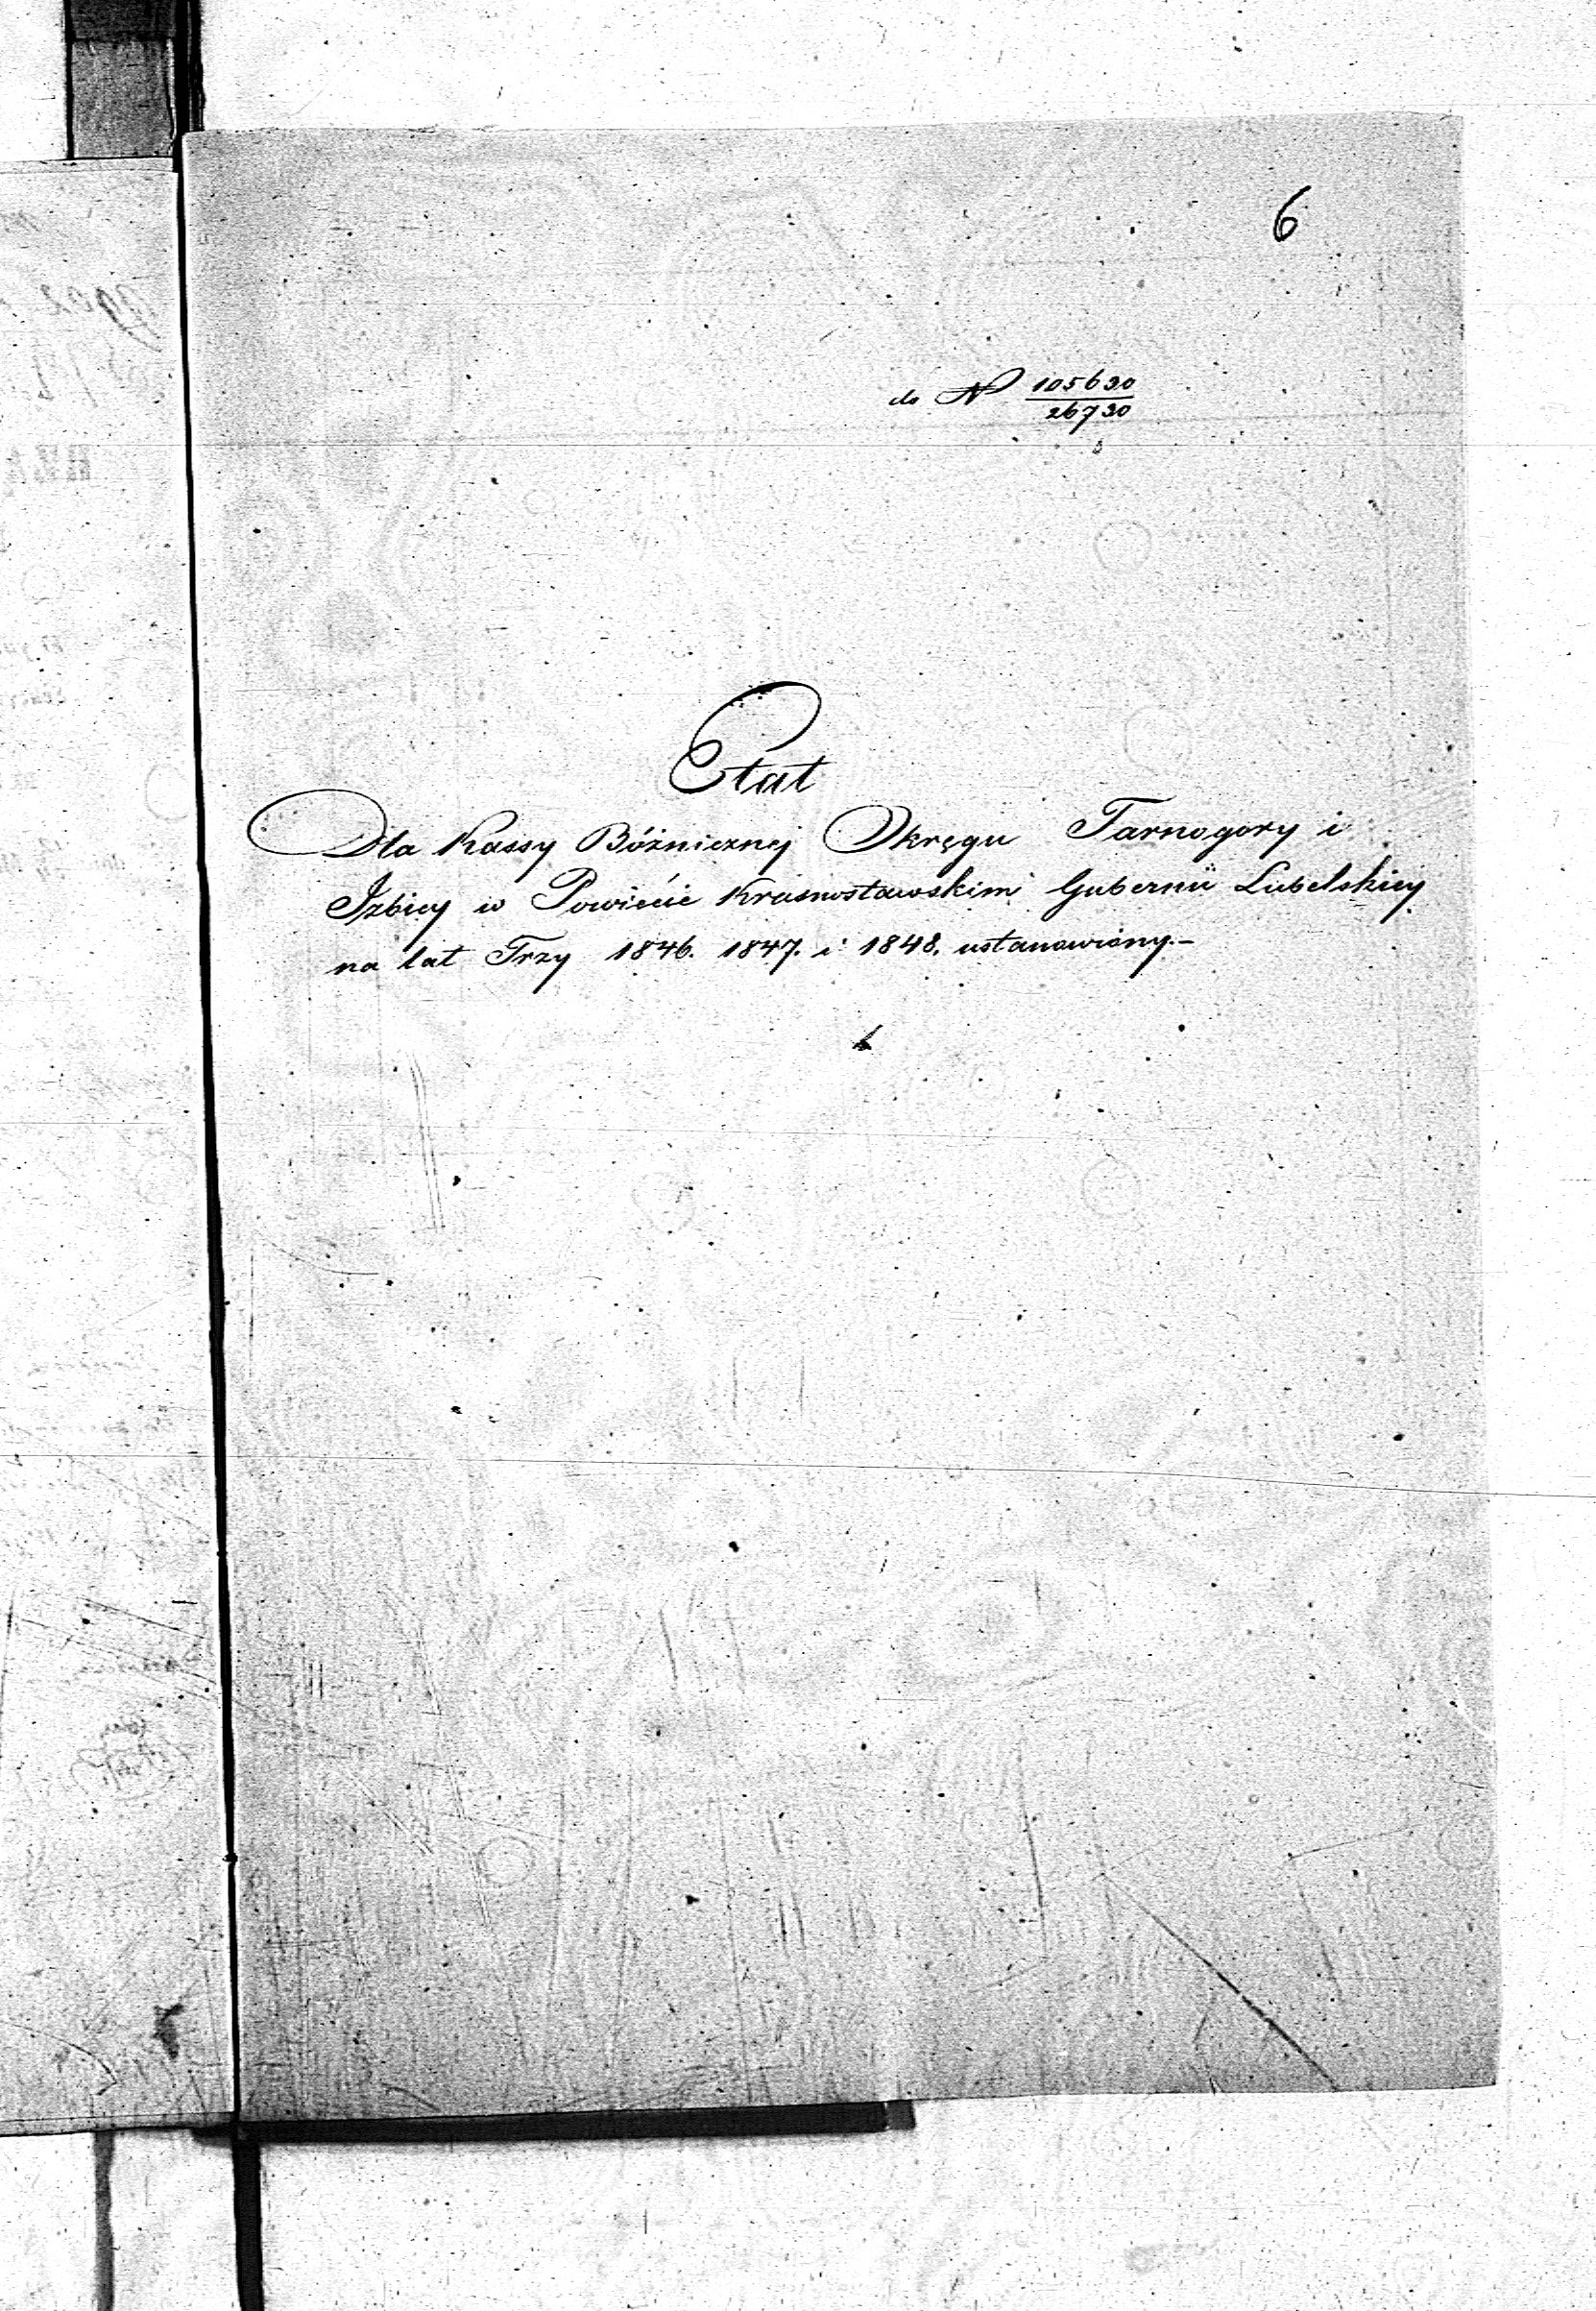 6
do N 105690
26730
Etat
Dla Kassy Bóżniczney Okręgu Tarnogory i
Izbicy w Powiecie Krasnostawskim Gubernii Lubelskiey
na lat Trzy 1846. 1847. i 1848. ustanowiony.—